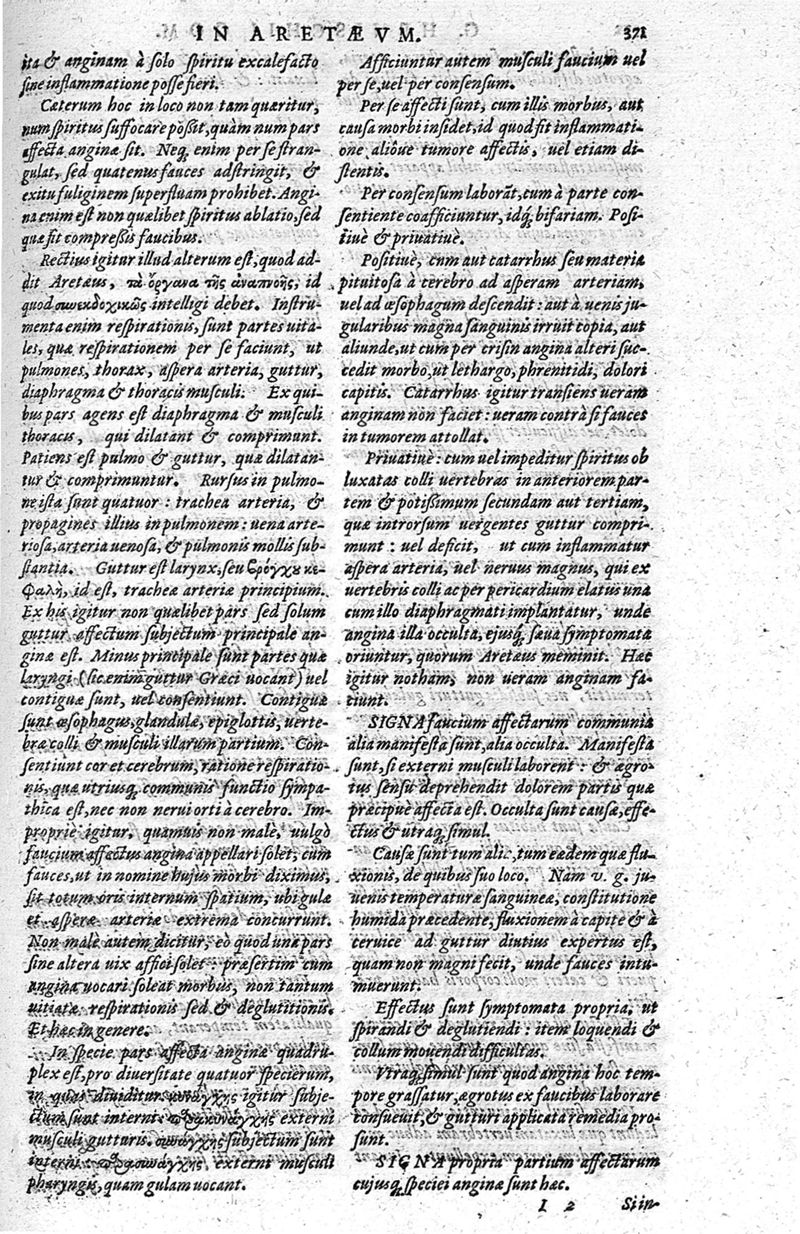 IN ARETÆVM. 371
ita & anginam à solo spiritu excalefacto
sine inflammatione posse fieri.
Cæterum hoc in loco non tam quæritur,
num spiritus suffocare poßit, quàm num pars
affecta anginæ sit. Neq; enim per se stran-
gulat, sed quatenus fauces adstringit, &
exitu fuliginem superfluam prohibet. Angi-
na enim est non quælibet spiritus ablatio, sed
quæ fit compreßis faucibus.
Rectius igitur illud alterum est, quod ad-
dit Aretæus, τὰ ὄργανα τῆς ἀναπνοῆς, id
quod συνεκδοχικῶς intelligi debet. Instru-
menta enim respirationis, sunt partes uita-
les, quæ respirationem per se faciunt, ut
pulmones, thorax, aspera arteria, guttur,
diaphragma & thoracis musculi. Ex qui-
bus pars agens est diaphragma & musculi
thoracis, qui dilatant & comprimunt.
Patiens est pulmo & guttur, quæ dilatan-
tur & comprimuntur. Rursus in pulmo-
ne ista sunt quatuor: trachea arteria, &
propagines illius in pulmonem: uena arte-
riosa, arteria uenosa, & pulmonis mollis sub-
stantia. Guttur est larynx, seu βρόγχου κε-
φαλὴ, id est, tracheæ arteriæ principium.
Ex his igitur non quælibet pars sed solum
guttur affectum subjectum principale an-
ginæ est. Minus principale sunt partes quæ
laryngi (sic enim guttur Græci uocant) uel
contiguæ sunt, uel consentiunt. Contiguæ
sunt œsophagus, glandulæ, epiglottis, uerte-
bræ colli & musculi illarum partium. Con-
sentiunt cor et cerebrum, ratione respiratio-
nis, quæ utriusq; communis functio sympa-
thica est, nec non nerui orti à cerebro. Im-
propriè igitur, quamuis non malè, uulgò
faucium affectus angina appellari solet, cùm
fauces, ut in nomine hujus morbi diximus,
sit totum oris internum spatium, ubi gulæ
et asperæ arteriæ extrema concurrunt.
Non malè autem dicitur, eò quod una pars
sine altera uix affici solet: præsertim cum
angina uocari soleat morbus, non tantum
uitiatæ respirationis sed & deglutitionis.
Et hæc in genere.
In specie pars affecta anginæ quadru-
plex est, pro diversitate quatuor specierum,
in quas dividitur. κυνάγχης igitur subje-
ctum sunt interni: παρακυνάγχης externi
musculi gutturis. συνάγχης subjectum sunt
interni: παρασυνάγχης externi musculi
pharyngis, quam gulam uocant.
Afficiuntur autem musculi faucium uel
per se, uel per consensum.
Per se affecti sunt, cum illis morbus, aut
causa morbi insidet, id quod fit inflammati-
one alióue tumore affectis, uel etiam di-
stentis.
Per consensum laborāt, cum à parte con-
sentiente coafficiuntur, idq; bifariam. Posi-
tiuè & priuatiuè.
Positiuè, cum aut catarrhus seu materia
pituitosa à cerebro ad asperam arteriam,
uel ad œsophagum descendit: aut à uenis ju-
gularibus magna sanguinis irruit copia, aut
aliunde, ut cum per crisin angina alteri suc-
cedit morbo, ut lethargo, phrenitidi, dolori
capitis. Catarrhus igitur transiens ueram
anginam non faciet: ueram contrà si fauces
in tumorem attollat.
Priuatiuè: cum uel impeditur spiritus ob
luxatas colli uertebras in anteriorem par-
tem & potißimum secundam aut tertiam,
quæ introrsum uergentes guttur compri-
munt: uel deficit, ut cum inflammatur
aspera arteria, uel neruus magnus, qui ex
uertebris colli ac per pericardium elatus una
cum illo diaphragmati implantatur, unde
angina illa occulta, ejusq; sæua symptomata
oriuntur, quorum Aretæus meminit. Hæc
igitur notham, non ueram anginam fa-
ciunt.
SIGNA faucium affectarum communia
alia manifesta sunt, alia occulta. Manifesta
sunt, si externi musculi laborent: & ægro-
tus sensu deprehendit dolorem partis quæ
præcipuè affecta est. Occulta sunt causæ, effe-
ctus & utraq; simul.
Causæ sunt tum aliæ, tum eædem quæ flu-
xionis, de quibus suo loco. Nam v. g. ju-
uenis temperaturæ sanguineæ, constitutione
humida præcedente, fluxionem à capite & à
ceruice ad guttur diutius expertus est,
quam non magni fecit, unde fauces intu-
muerunt.
Effectus sunt symptomata propria, ut
spirandi & deglutiendi: item loquendi &
collum mouendi difficultas.
Vtraq; simul sunt quod angina hoc tem-
pore grassatur, ægrotus ex faucibus laborare
consueuit, & gutturi applicata remedia pro-
sunt.
SIGNA propria partium affectarum
cujusq; speciei anginæ sunt hæc.
I 2 Si in-